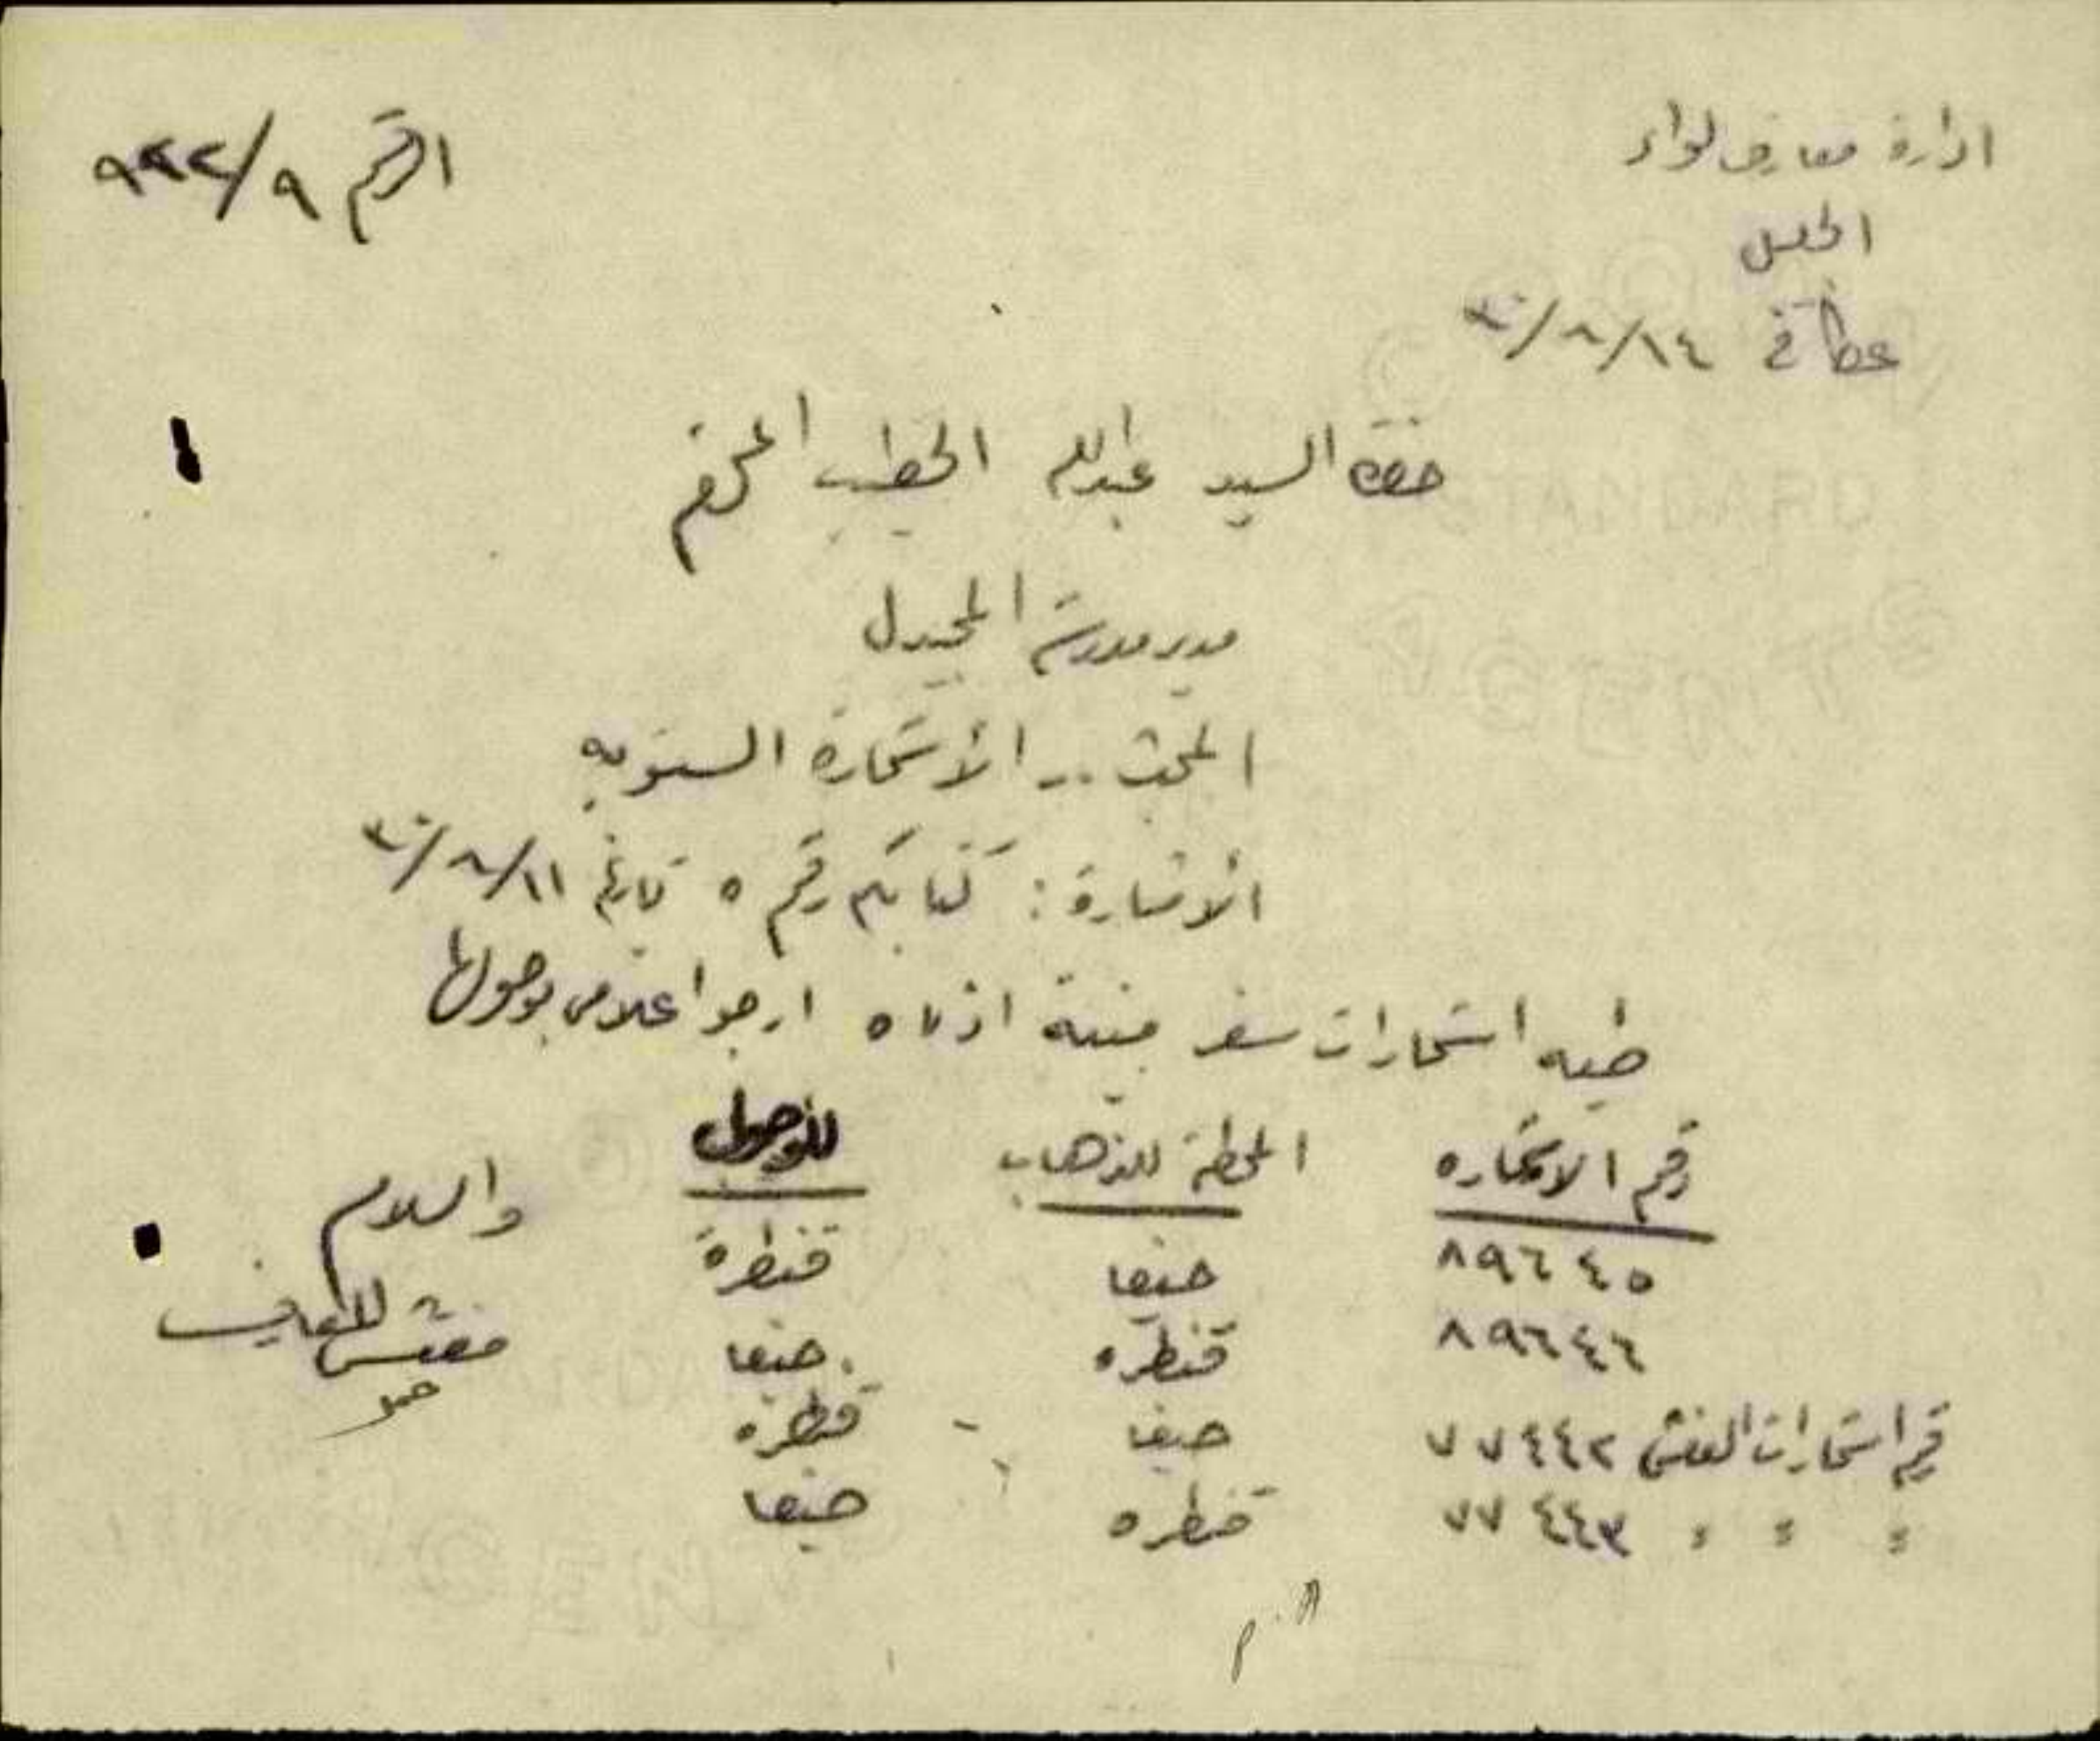 ادارة معارف لواء
الجليل
عكا في ١٤/٨/٣٠
الرقم ٩/٩٢٢
حضرة السيد عبدالله الخطيب المحترم
مدير مدرسة المجيدل
المبحث .. الأستمارة السنويه
الأشارة : كتابكم رقم ٥ تاريخ ١١/٨/٣٠
طيه استمارات سفر مبينة ادناه ارجو اعلامي بوصولها
رقم الاستماره المحطة للذهاب للوصول
٨٩٦٤٥ حيفا قنطرة
٨٩٦٤٦ قنطره حيفا
رقم استمارات العفش ٧٧٤٤٢ حيفا قنطره
" " " ٧٧٤٤٣ قنطره حيفا
والسلام
مفتش المعارف